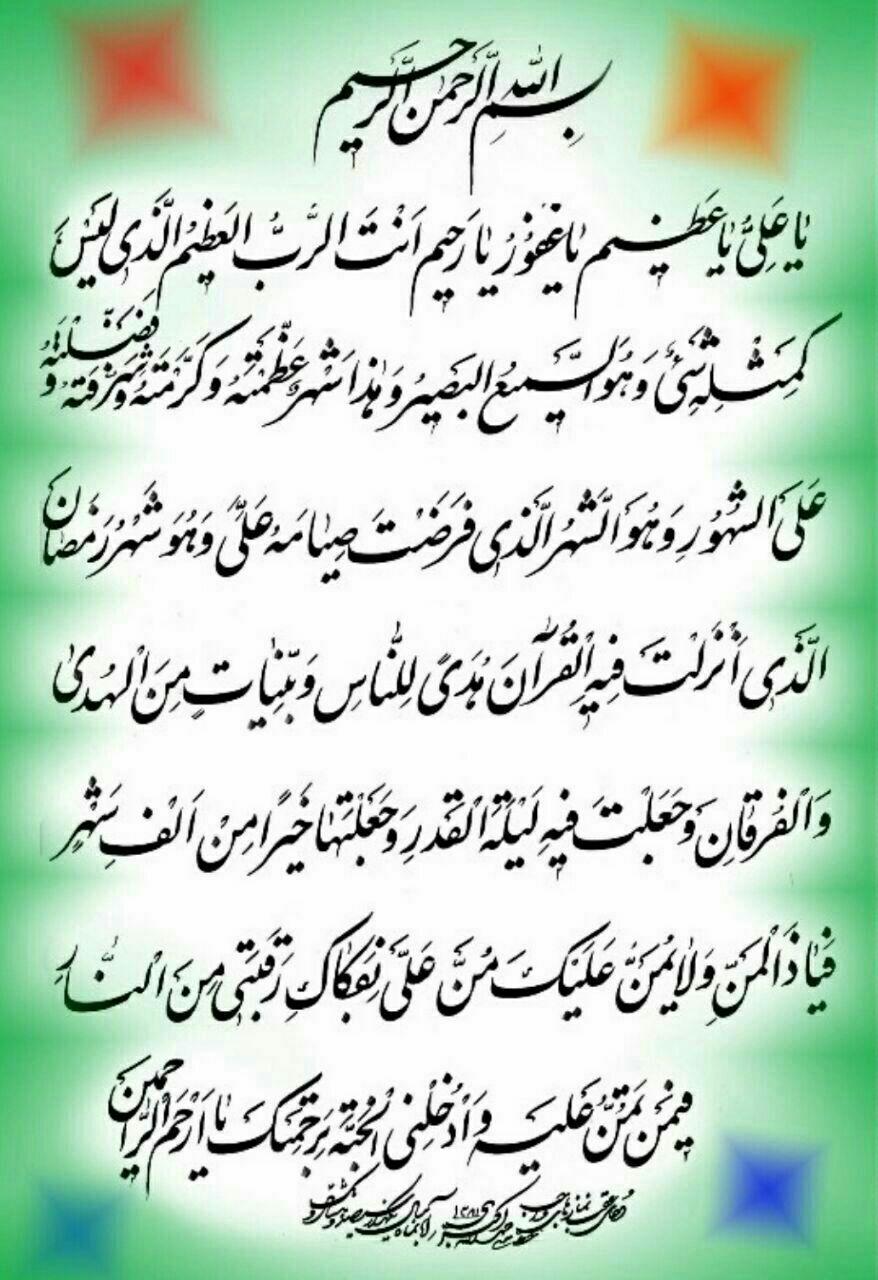 بِسْمِ اللهِ الرَّحْمٰنِ الرَّحیمِ
یٰا عَلِیُّ یٰا عَظیمُ یٰا غَفُورُ یٰا رَحیمُ اَنْتَ الرَّبُّ العَظیمُ الَّذی لَیْسَ
کَمِثْلِهِ شَیْءٌ وَ هُوَ السَّمیعُ البَصیرُ وَ هٰذا شَهْرٌ عَظَّمْتَهُ وَ کَرَّمْتَهُ وَ شَرَّفْتَهُ وَ فَضَّلْتَهُ
عَلَی الشُّهُورِ وَ هُوَ الشَّهْرُ الَّذی فَرَضْتَ صِیٰامَهُ عَلَیَّ وَ هُوَ شَهْرُ رَمَضٰانَ
الَّذی اَنْزَلْتَ فِیهِ الْقُرْآنَ هُدَیً لِلنّٰاسِ وَ بَیِّنٰاتٍ مِنَ الْهُدیٰ
وَالْفُرْقٰانِ وَ جَعَلْتَ فیهِ لَیْلَةَ الْقَدْرِ وَ جَعَلْتَهٰا خَیْرًا مِنْ اَلْفِ شَهْرٍ
فَیٰا ذَالْمَنِّ وَلٰا یُمَنُّ عَلَیْکَ مُنَّ عَلَیَّ بِفَکٰاکِ رَقَبَتی مِنَ النّٰارِ
فیمَنْ تَمُنُّ عَلَیْهِ وَ اَدْخِلْنِی الْجَنَّةَ بِرَحْمَتِکَ یٰا اَرْحَمَ الرّٰاحِمینَ